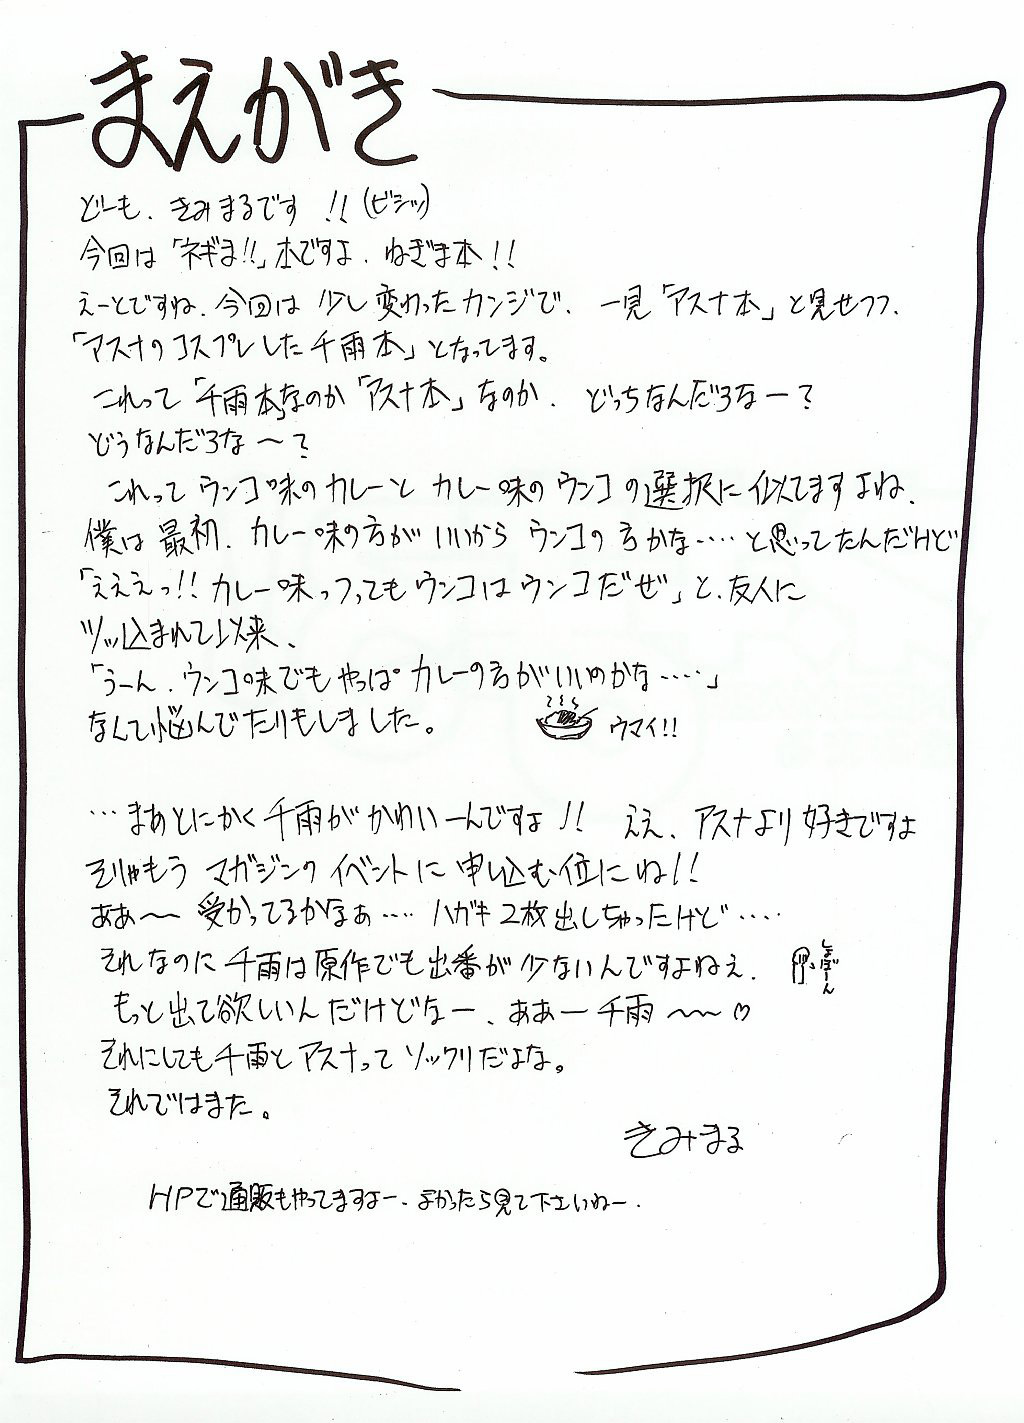 まえがき
どーも、きみまるです!!(ビシッ)
今回は「ネギま!!」本ですよ、ねぎま本!!
えーとですね、今回は少し変わったカンジで、一見「アスナ本」と見せつつ、
「アスナのコスプレした千雨本」となってます。
これって「千雨本」なのか「アスナ本」なのか、どっちなんだろなー?
どうなんだろな〜?
これってウンコ味のカレーとカレー味のウンコの選択に似てますよね、
僕は最初、カレー味の方がいいからウンコの方かな‥‥と思ってたんだけど
「えええっ!!カレー味っつってもウンコはウンコだぜ」と、友人に
ツッ込まれて以来、
「うーん、ウンコ味でもやっぱカレーの方がいいのかな‥‥」
なんて悩んでたりもしました。
ウマイ!!
…まあとにかく千雨がかわいーんですよ!!ええ、アスナより好きですよ
そりゃもうマガジンのイベントに申し込む位にね!!
ああ〜受かってるかなぁ‥‥ハガキ2枚出しちゃったけど‥‥
それなのに千雨は原作でも出番が少ないんですよねぇ、
しょぼーん
もっと出て欲しいんだけどなー、ああー千雨〜〜♡
それにしても千雨とアスナってソックリだよな。
それではまた。
きみまる
HPで通販もやってますよー、よかったら見て下さいねー、